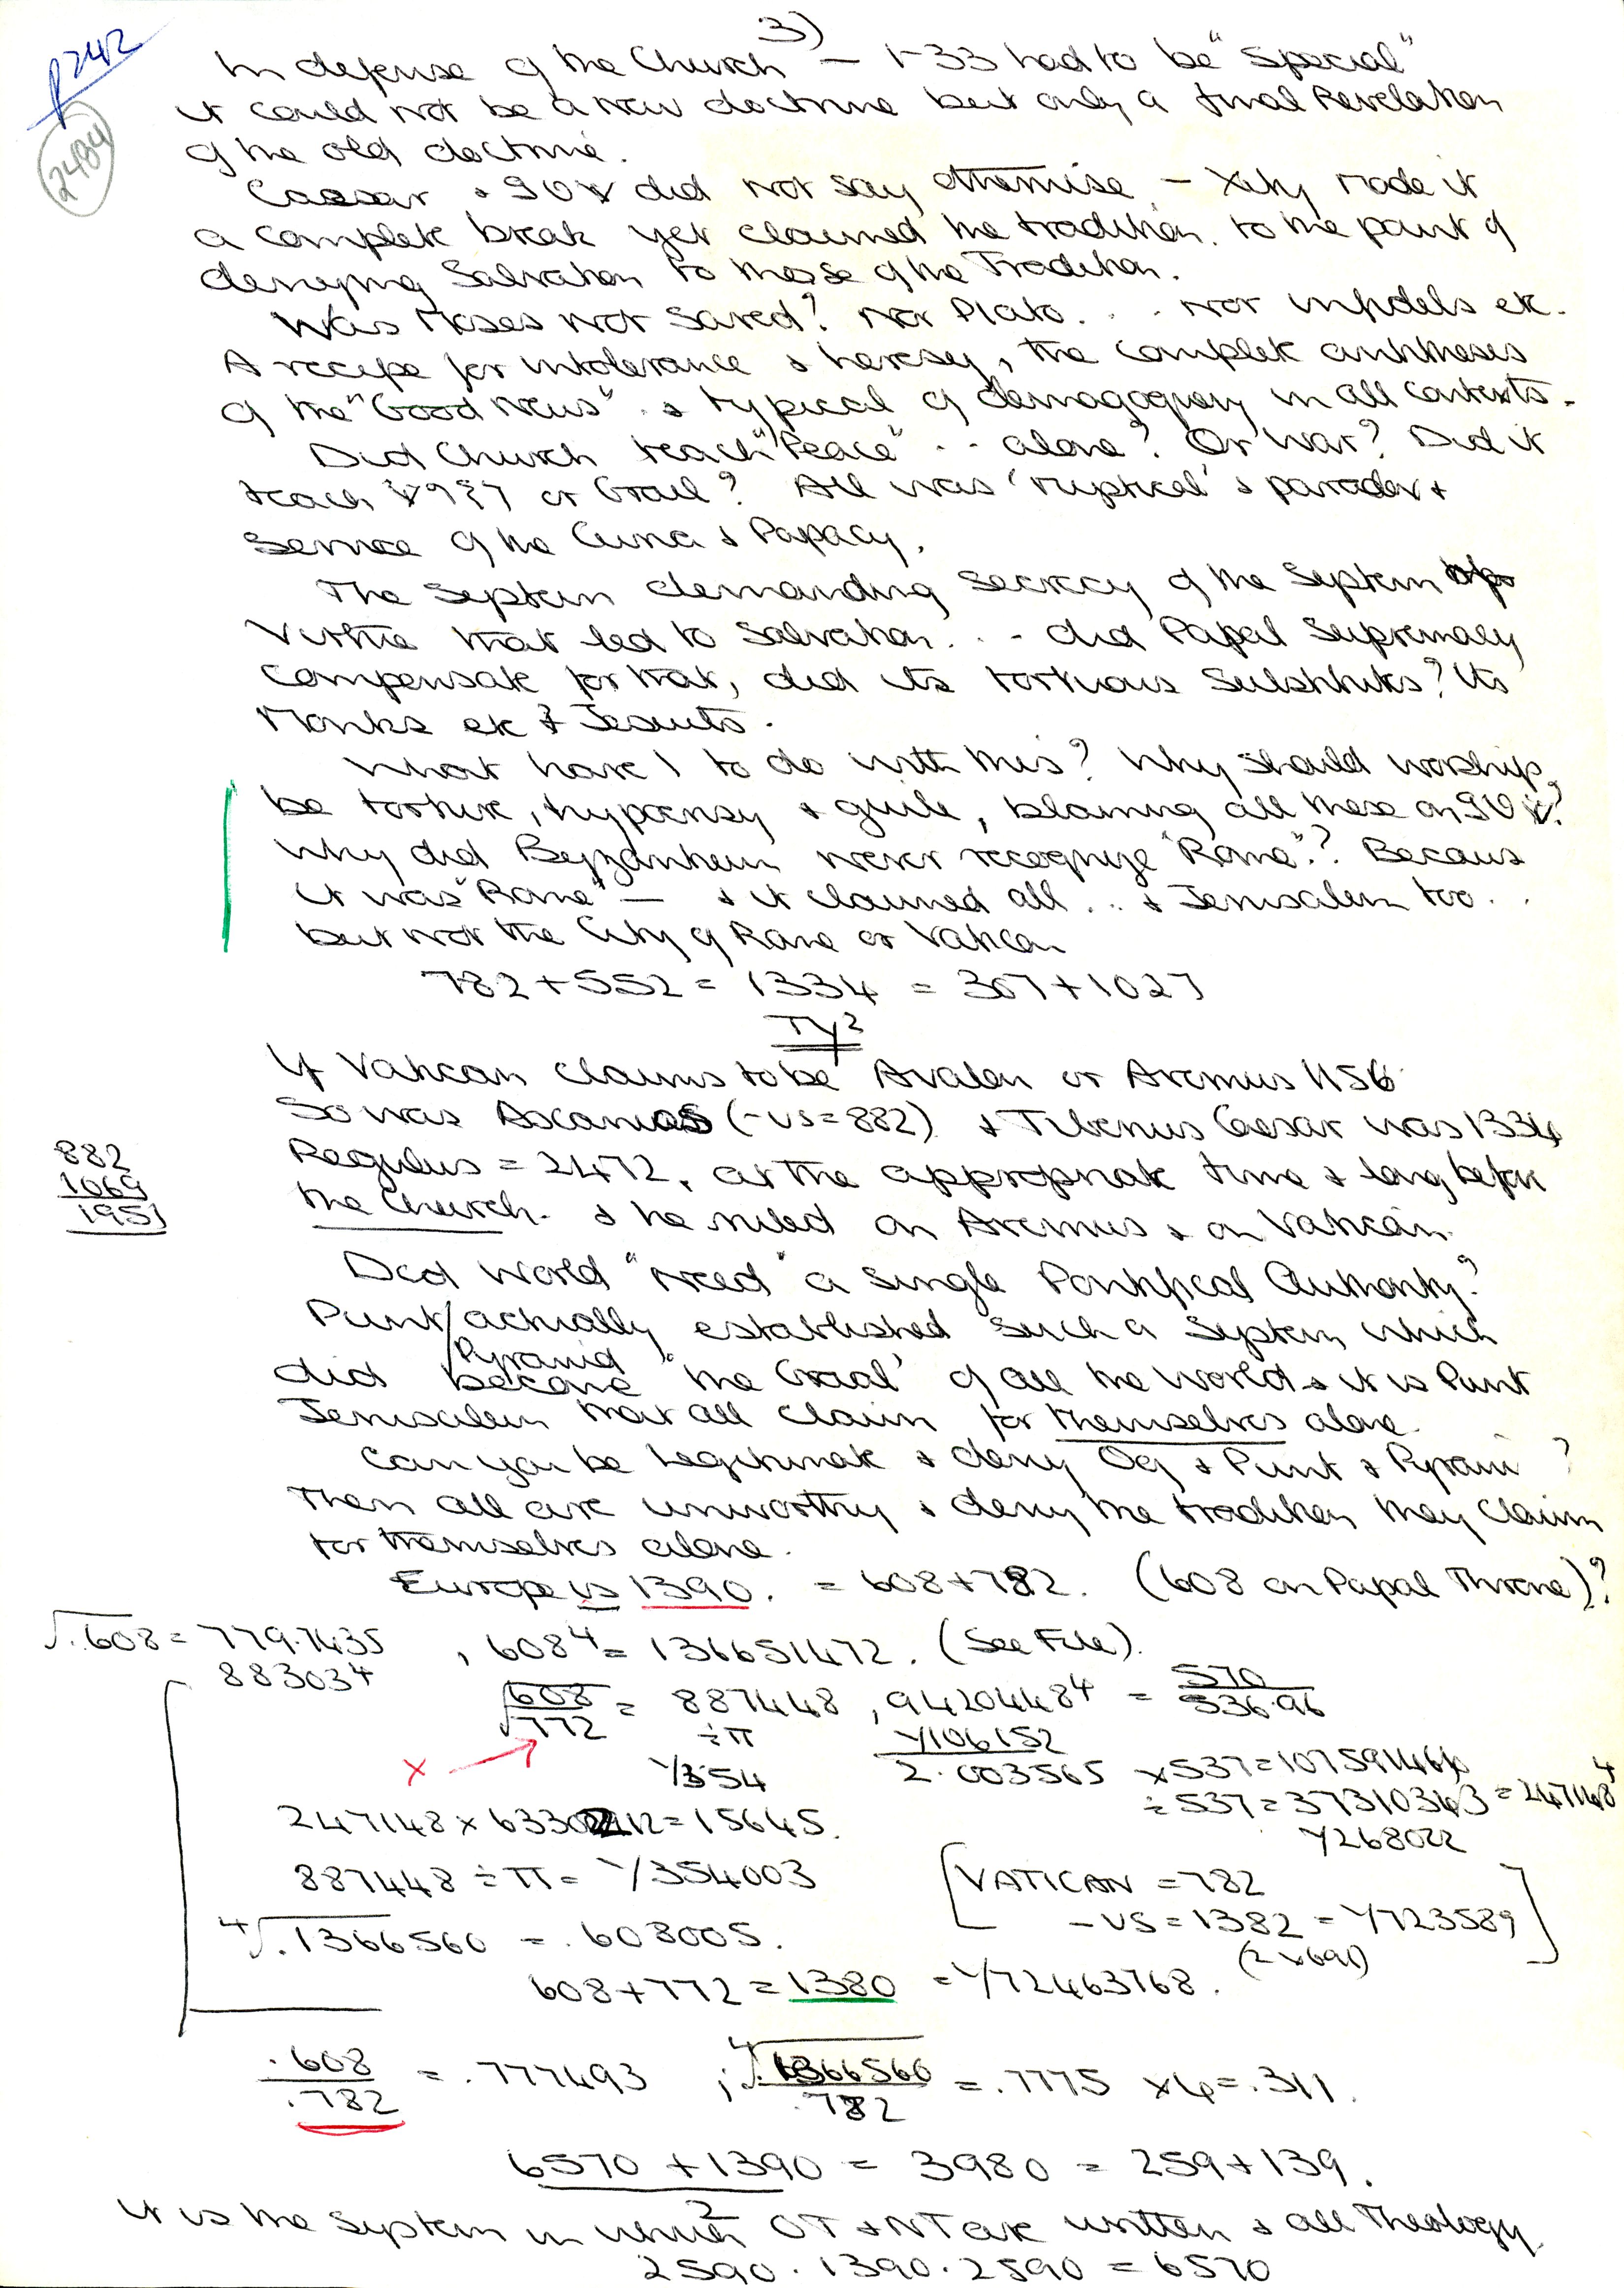 3)
f242
2484
In defense of the Church – 1-33 had to be "Special"
it could not be a new doctrine but only a final Revelation
of the old doctrine.
Caesar & did not say otherwise – Xity made it
a complete break yet claimed the tradition. to the point of
denying Salvation to those of the Tradition.
Was Moses not saved? Nor Plato. . . Nor infidels etc.
A recipe for intolerance & heresy, the complete antitheses
of the "Good News" & typical of demagoguery in all contexts.
Did Church teach "Peace" . . alone? Or War? Did it
teach or Grail? All was 'mystical' & parade &
Service of the Curia & Papacy.
The System demanding secrecy of the System
Virtue that led to Salvation. . . did Papal Supremacy
compensate for that, did its tortuous Substitutes? Its
Monks etc & Jesuits.
What have I to do with this? Why should worship
be torture, hypocrisy & guile, blaming all these on
Why did Byzantium never recognize "Rome"? Because
it was "Rome" – & it claimed all . . & Jerusalem too. .
but not the City of Rome or Vatican
782 + 552 = 1334 = 307 + 1027
TY²
If Vatican claims to be Avalon or Aremus 1156
So was Ascanios (-us = 882) & Tiberius Caesar was 1334
882
1069
1951
Regulus = 2472, at the appropriate time & long before
the Church. & he ruled on Aremus & on Vatican.
Did World "Need" a single Pontifical Authority?
Punt/actually established such a System which
Pyramid
did become 'the Graal' of all the World & it is Punt
Jerusalem that all claim for themselves alone.
Can you be Legitimate & deny Og & Punt & Pyram ?
Then all are unworthy & deny the tradition they claim
for themselves alone.
Europe is 1390. = 608 + 782. (608 on Papal Throne)?
√.608 = 779.7435 , 608⁴ = 136651472. (See File).
883034
√608/772 = 887448 , 94204484 = 570/536.96
÷π Y106152
1/354 2.003565 × 537 = 1075914
÷ 537 = 37310363 = 247148⁴
247148 × 6330 12 = 15645. Y268022
887448 ÷ π = Y354003 [VATICAN = 782
-US = 1382 = Y723589]
(2×691)
⁴√.1366560 = .608005.
608 + 772 = 1380 = Y72463768.
.608/.782 = .777493 ; ⁴√.1366560/.782 = .7775 × 4 = .311.
6570 + 1390 / 2 = 3980 = 259 + 139.
It is the System in which OT & NT are written & all Theology.
2590 . 1390 . 2590 = 6570